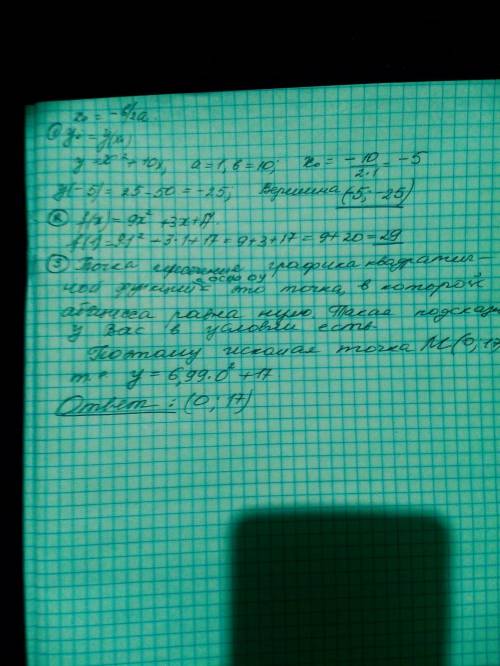 x₀ = -b/2a.
① y₀ = y(x₀)
y = x² + 10x, a = 1, b = 10; x₀ = -10/2·1 = -5
y(-5) = 25 - 50 = -25; Вершина (-5; -25)
② f(x) = 9x² + 3x + 17
f(1) = 9·1² + 3·1 + 17 = 9 + 3 + 17 = 9 + 20 = 29
③ Точка пересечения графика квадратич-
с осью оу
ной функции - это точка, в которой
абсцисса равна нулю. Такая подсказка
у Вас в условии есть.
Поэтому искомая точка М(0; 17
т.к. y = 6,99·0² + 17
Ответ: (0; 17)